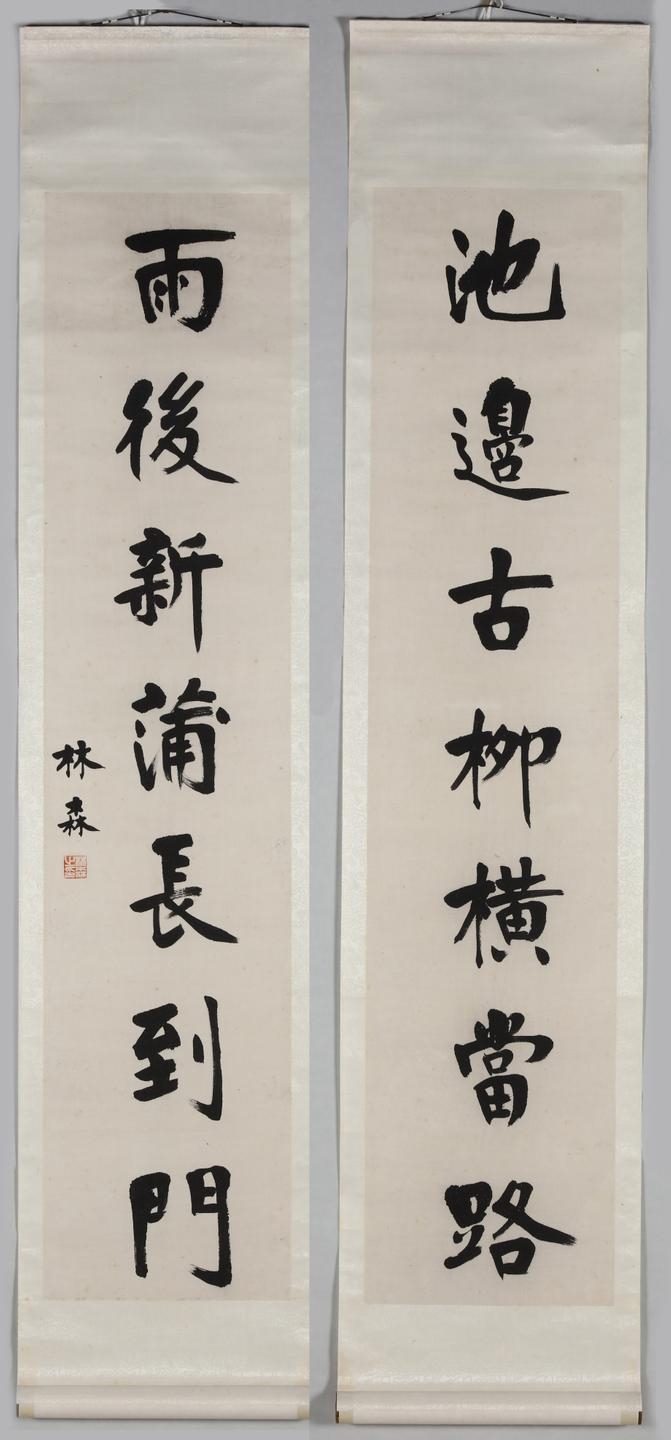 池邊古柳橫當路
雨後新蒲長到門
林森